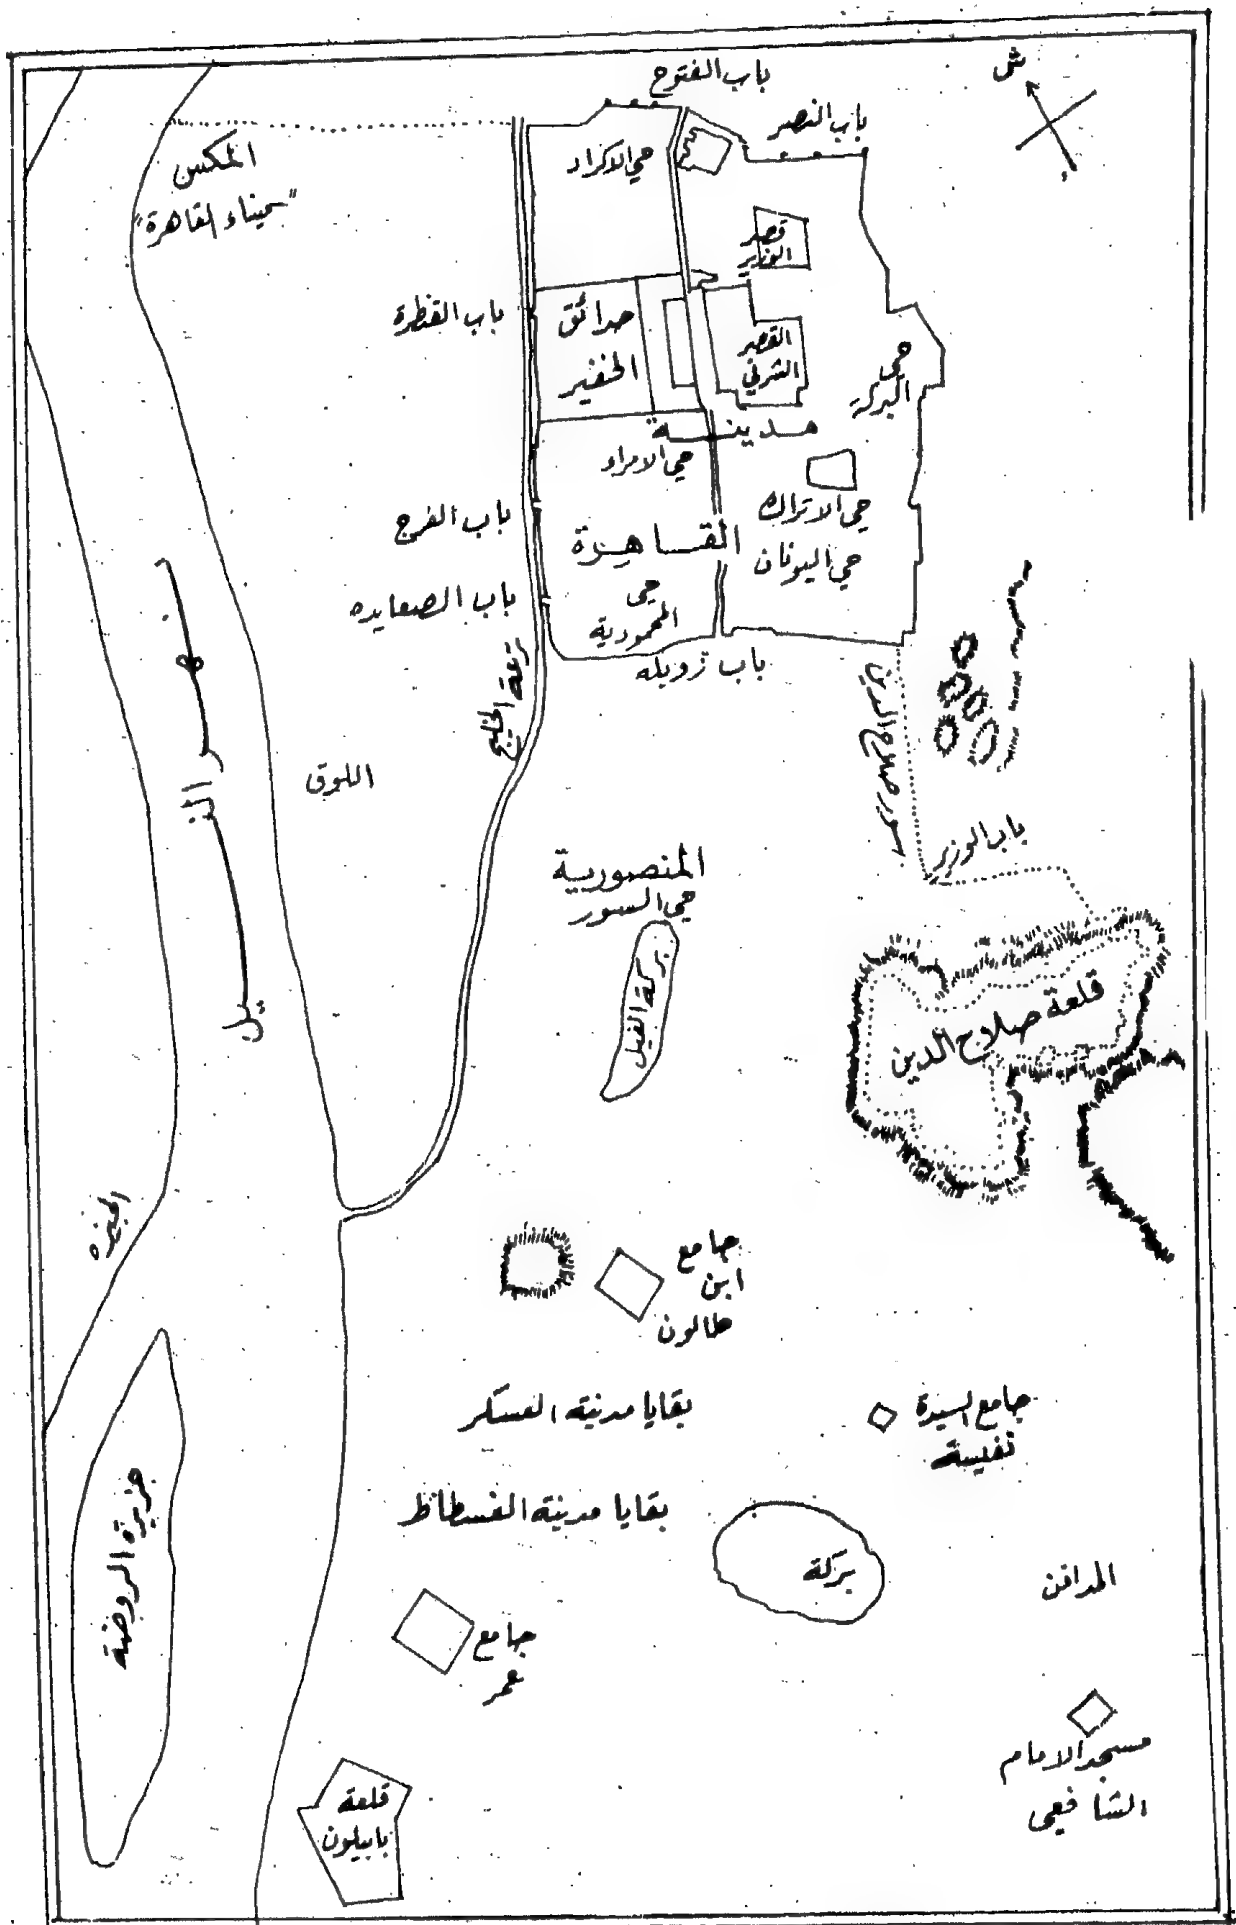 ش
باب الفتوح
باب النصر
المكس
"ميناء القاهرة"
حي الاكراد
قصر
الوزير
باب القنطرة
حدائق
الخفير
القصر
الشرقي
حي
البركة
مدينـــة
حي الامراء
حي الاتراك
باب الفرج
القـاهـرة
حي اليونان
باب الصعايده
حي
المحمودية
باب زويله
ترعة الخليج
سور صلاح الدين
نهر النيل
اللوق
باب الوزير
المنصورية
حي السور
بركة الفيل
قلعة صلاح الدين
الجيزه
جامع
ابن
طالون
بقايا مدينة العسكر
جامع السيدة
نفيسة
بقايا مدينة الفسطاط
جزيرة الروضة
بركة
المدافن
جامع
عمر
مسجد الامام
الشافعي
قلعة
بابيلون